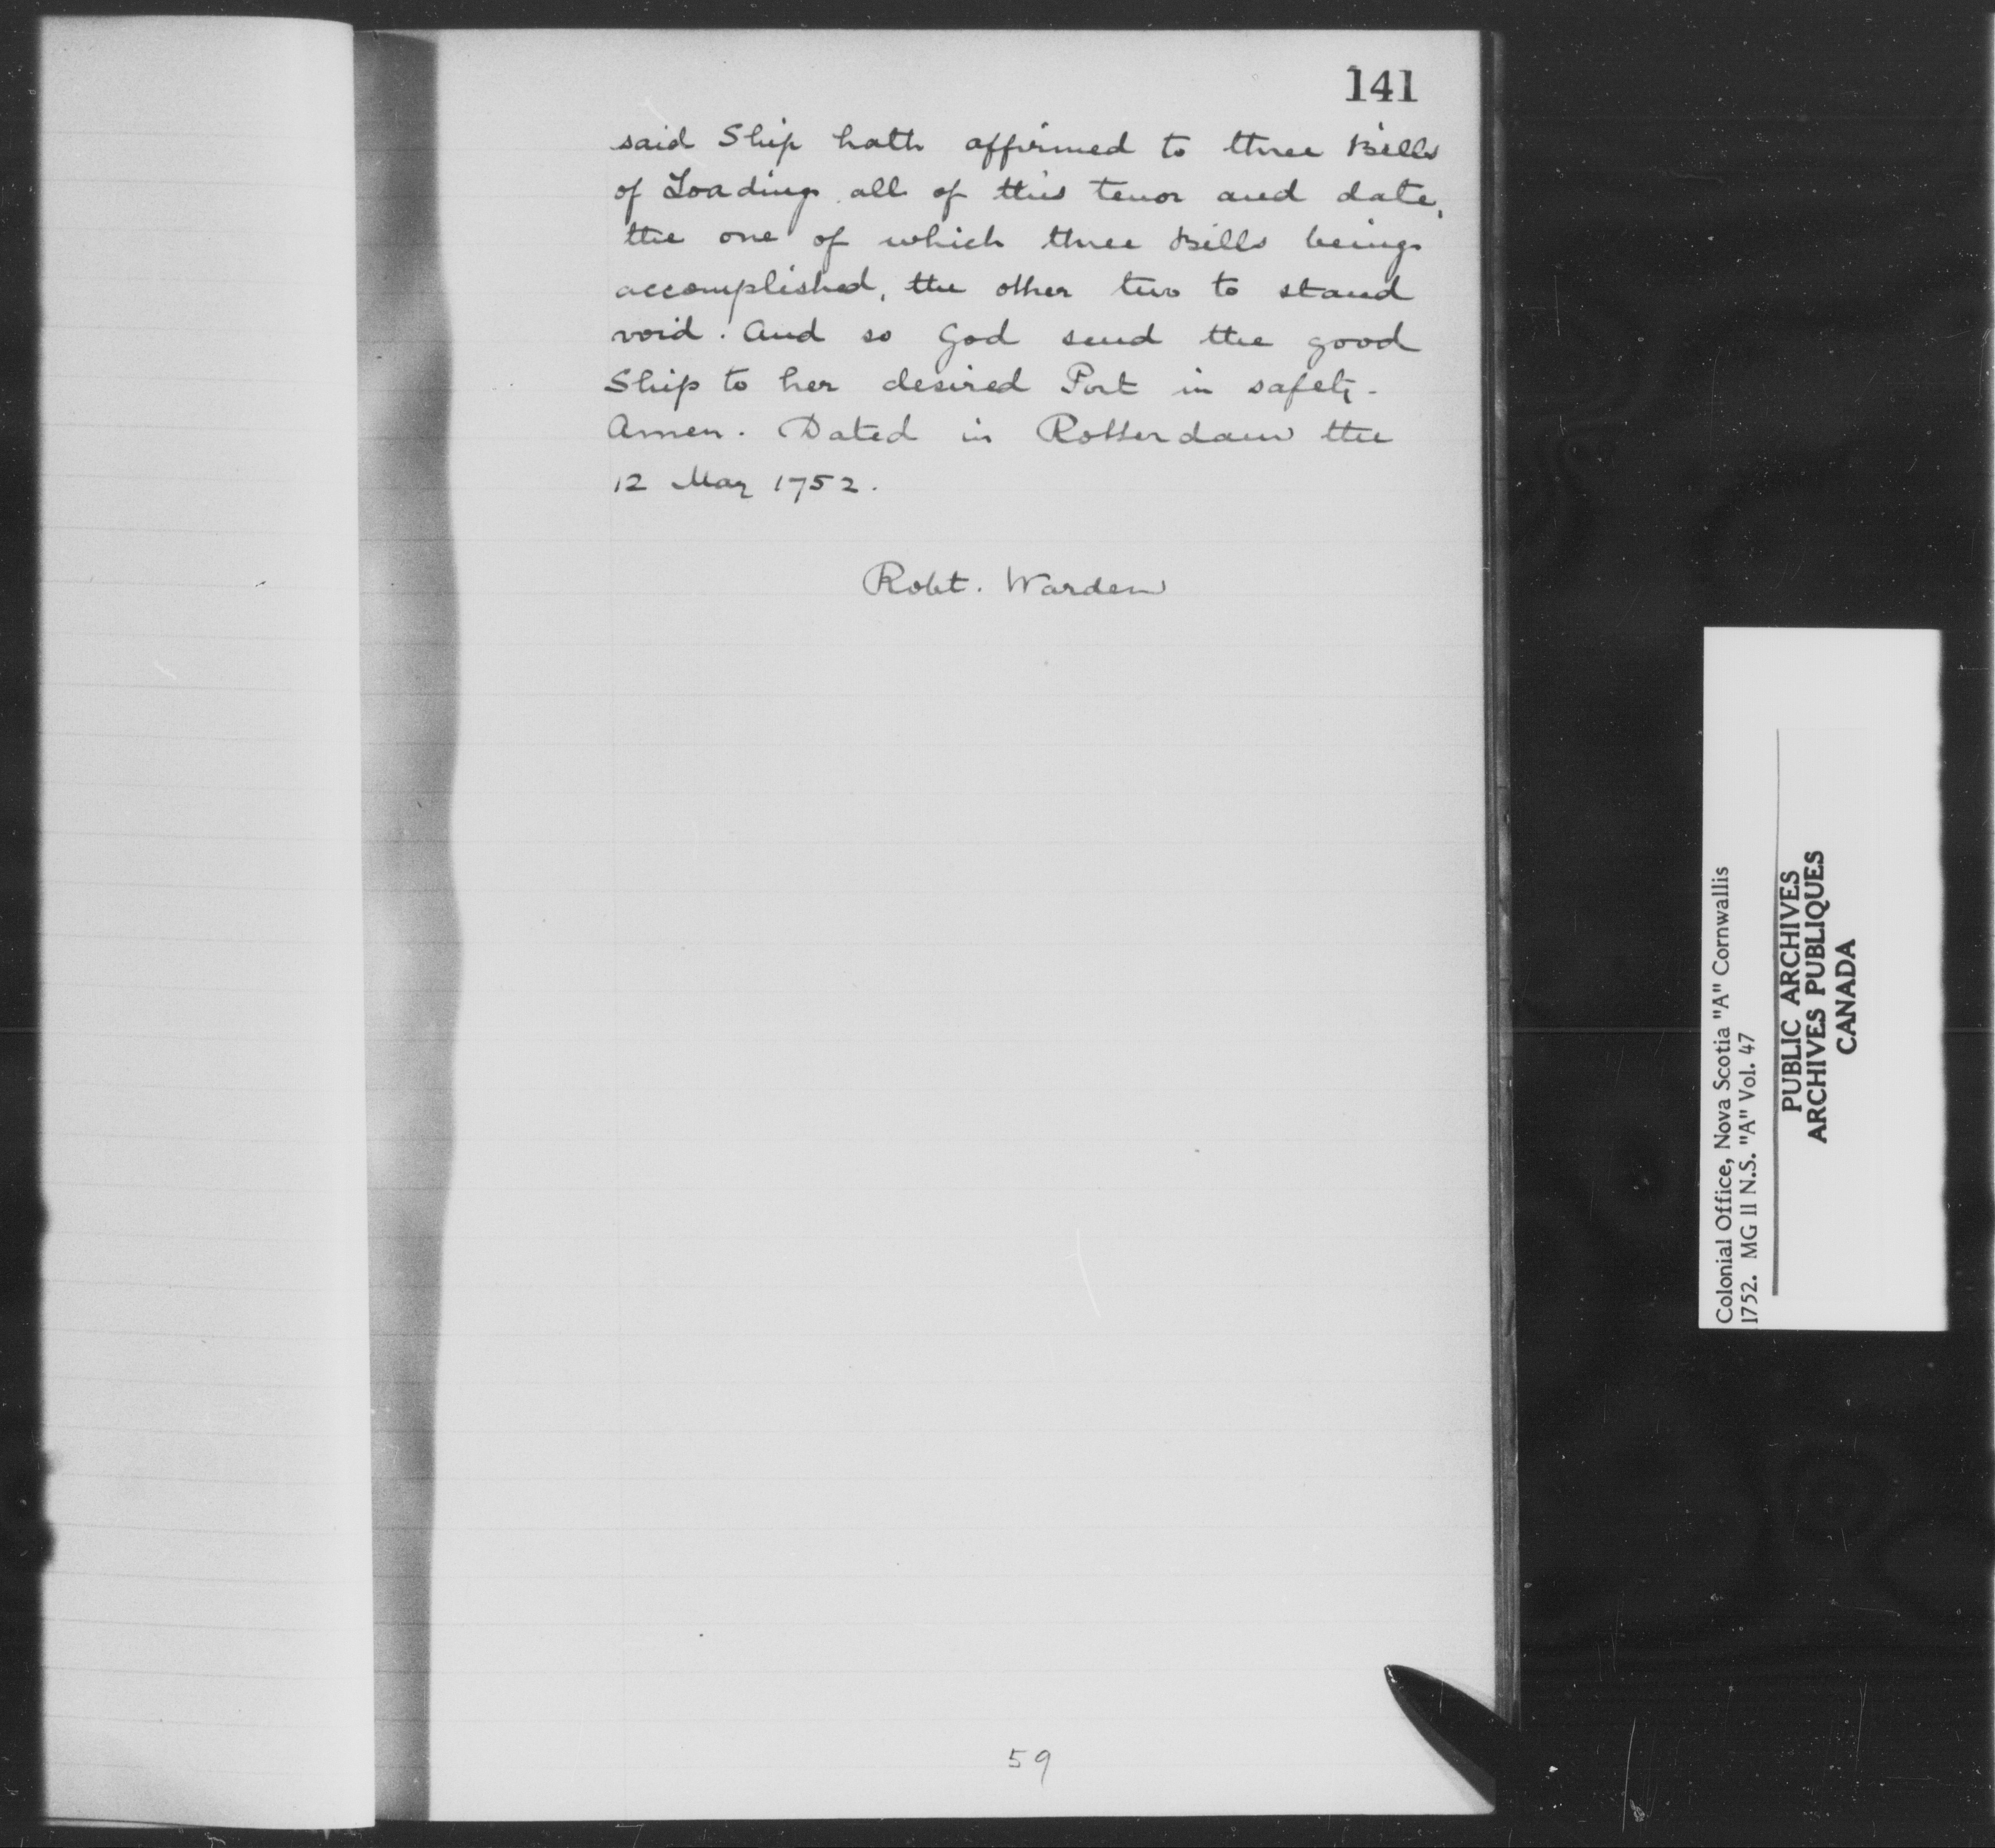 141
said Ship hath affirmed to three Bills
of Loading all of this tenor and date,
the one of which three Bills being
accomplished, the other two to stand
void. And so God send the good
Ship to her desired Port in safety.
Amen. Dated in Rotterdam the
12 May 1752.
Robt. Warden
59
Colonial Office, Nova Scotia "A" Cornwallis
1752. MG 11 N.S. "A" Vol. 47
PUBLIC ARCHIVES
ARCHIVES PUBLIQUES
CANADA